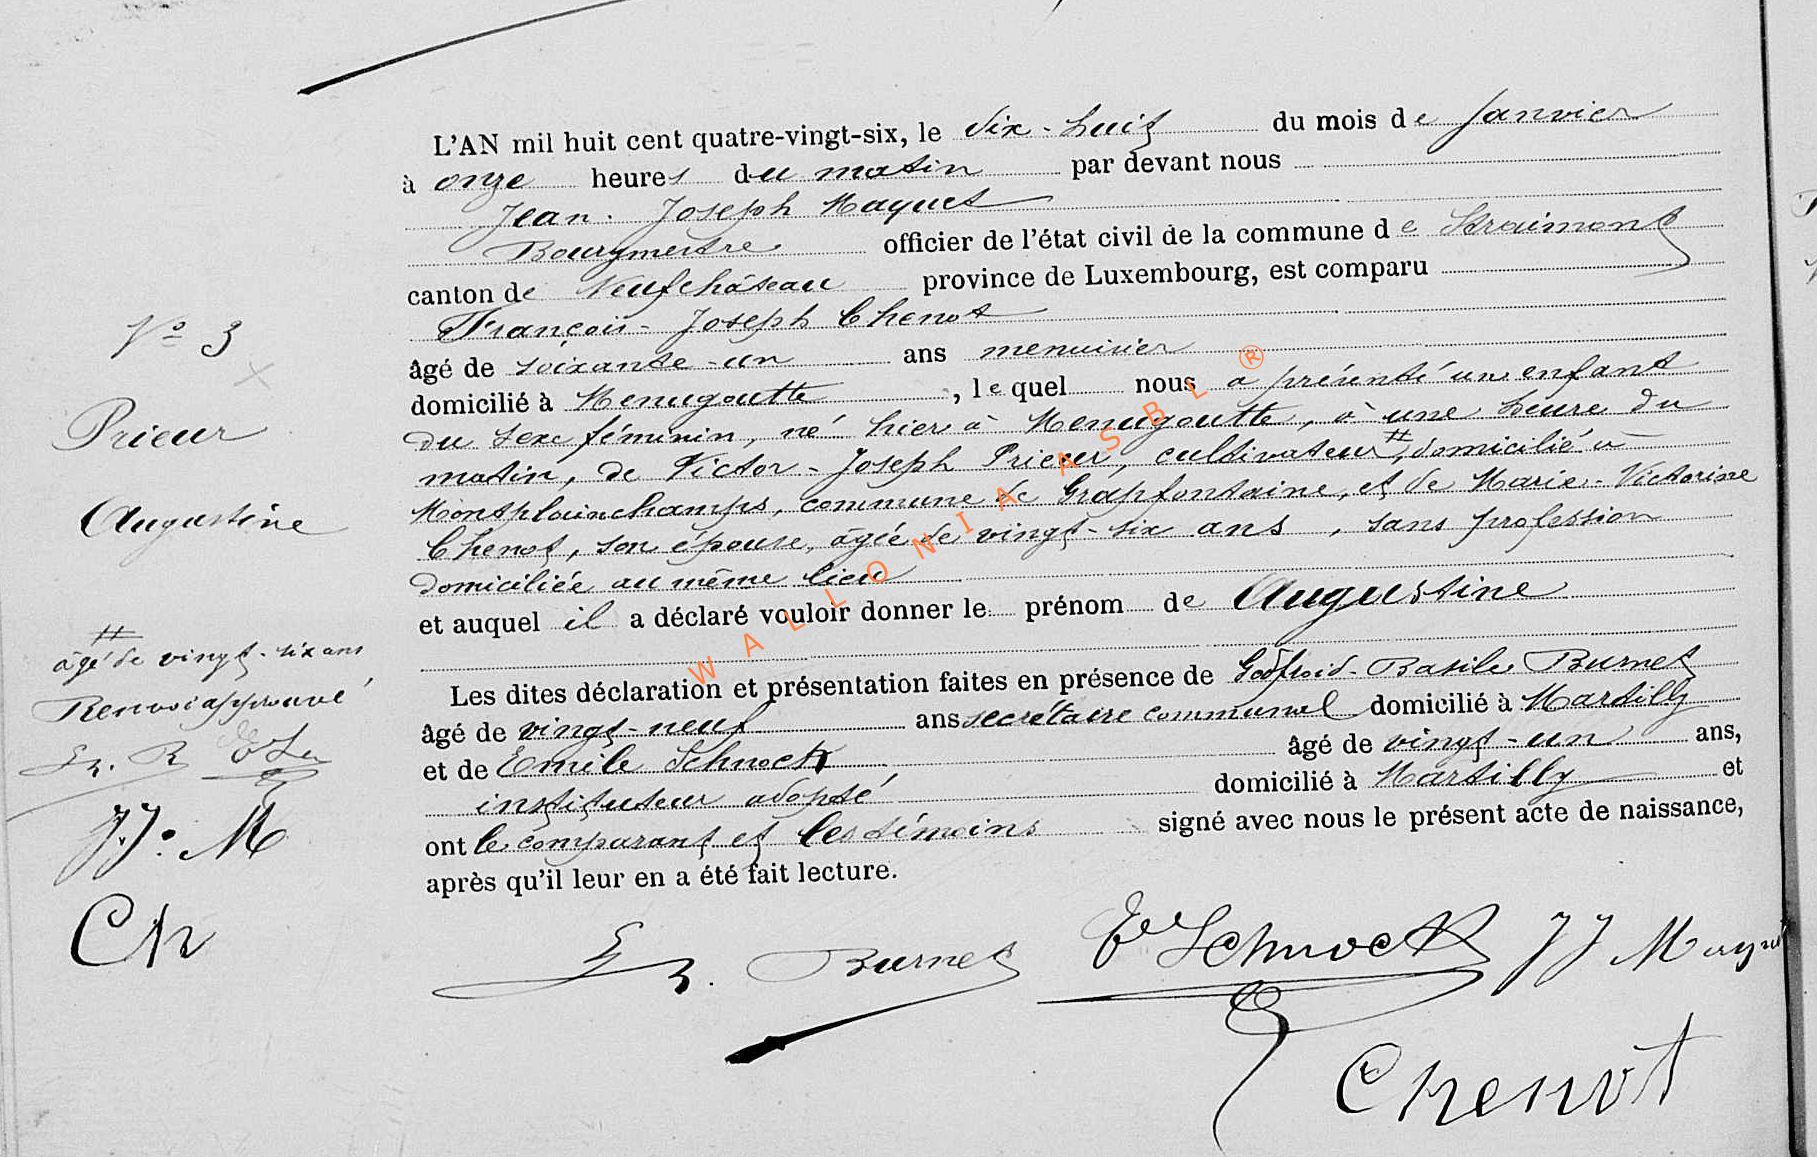 L'AN mil huit cent quatre-vingt-six, le dix-huit du mois de Janvier
à onze heures du matin par devant nous
Jean-Joseph Maquet
Bourgmestre officier de l'état civil de la commune de Straimont
canton de Neufchâteau province de Luxembourg, est comparu
François-Joseph Chenot
âgé de soixante-un ans menuisier
domicilié à Menugoutte, lequel nous a présenté un enfant
du sexe féminin, né hier à Menugoutte, à une heure du
matin, de Victor-Joseph Prieur, cultivateur #, domicilié à
Montplainchamps, commune de Grapfontaine, et de Marie-Victorine
Chenot, son épouse, âgée de vingt-six ans, sans profession
domiciliée au même lieu
et auquel il a déclaré vouloir donner le prénom de Augustine
Les dites déclaration et présentation faites en présence de Godfroid-Basile Burnet
âgé de vingt-neuf ans secrétaire communal domicilié à Martilly
et de Emile Schnock âgé de vingt-un ans,
instituteur adopté domicilié à Martilly et
ont le comparant et les témoins signé avec nous le présent acte de naissance,
après qu'il leur en a été fait lecture.
N° 3
Prieur
Augustine
#
âgé de vingt-six ans
Renvoi approuvé
J.J. M
Ch
Burnet
E Schnock
JJ Maquet
Chenot
WALLONIA ASBL ®